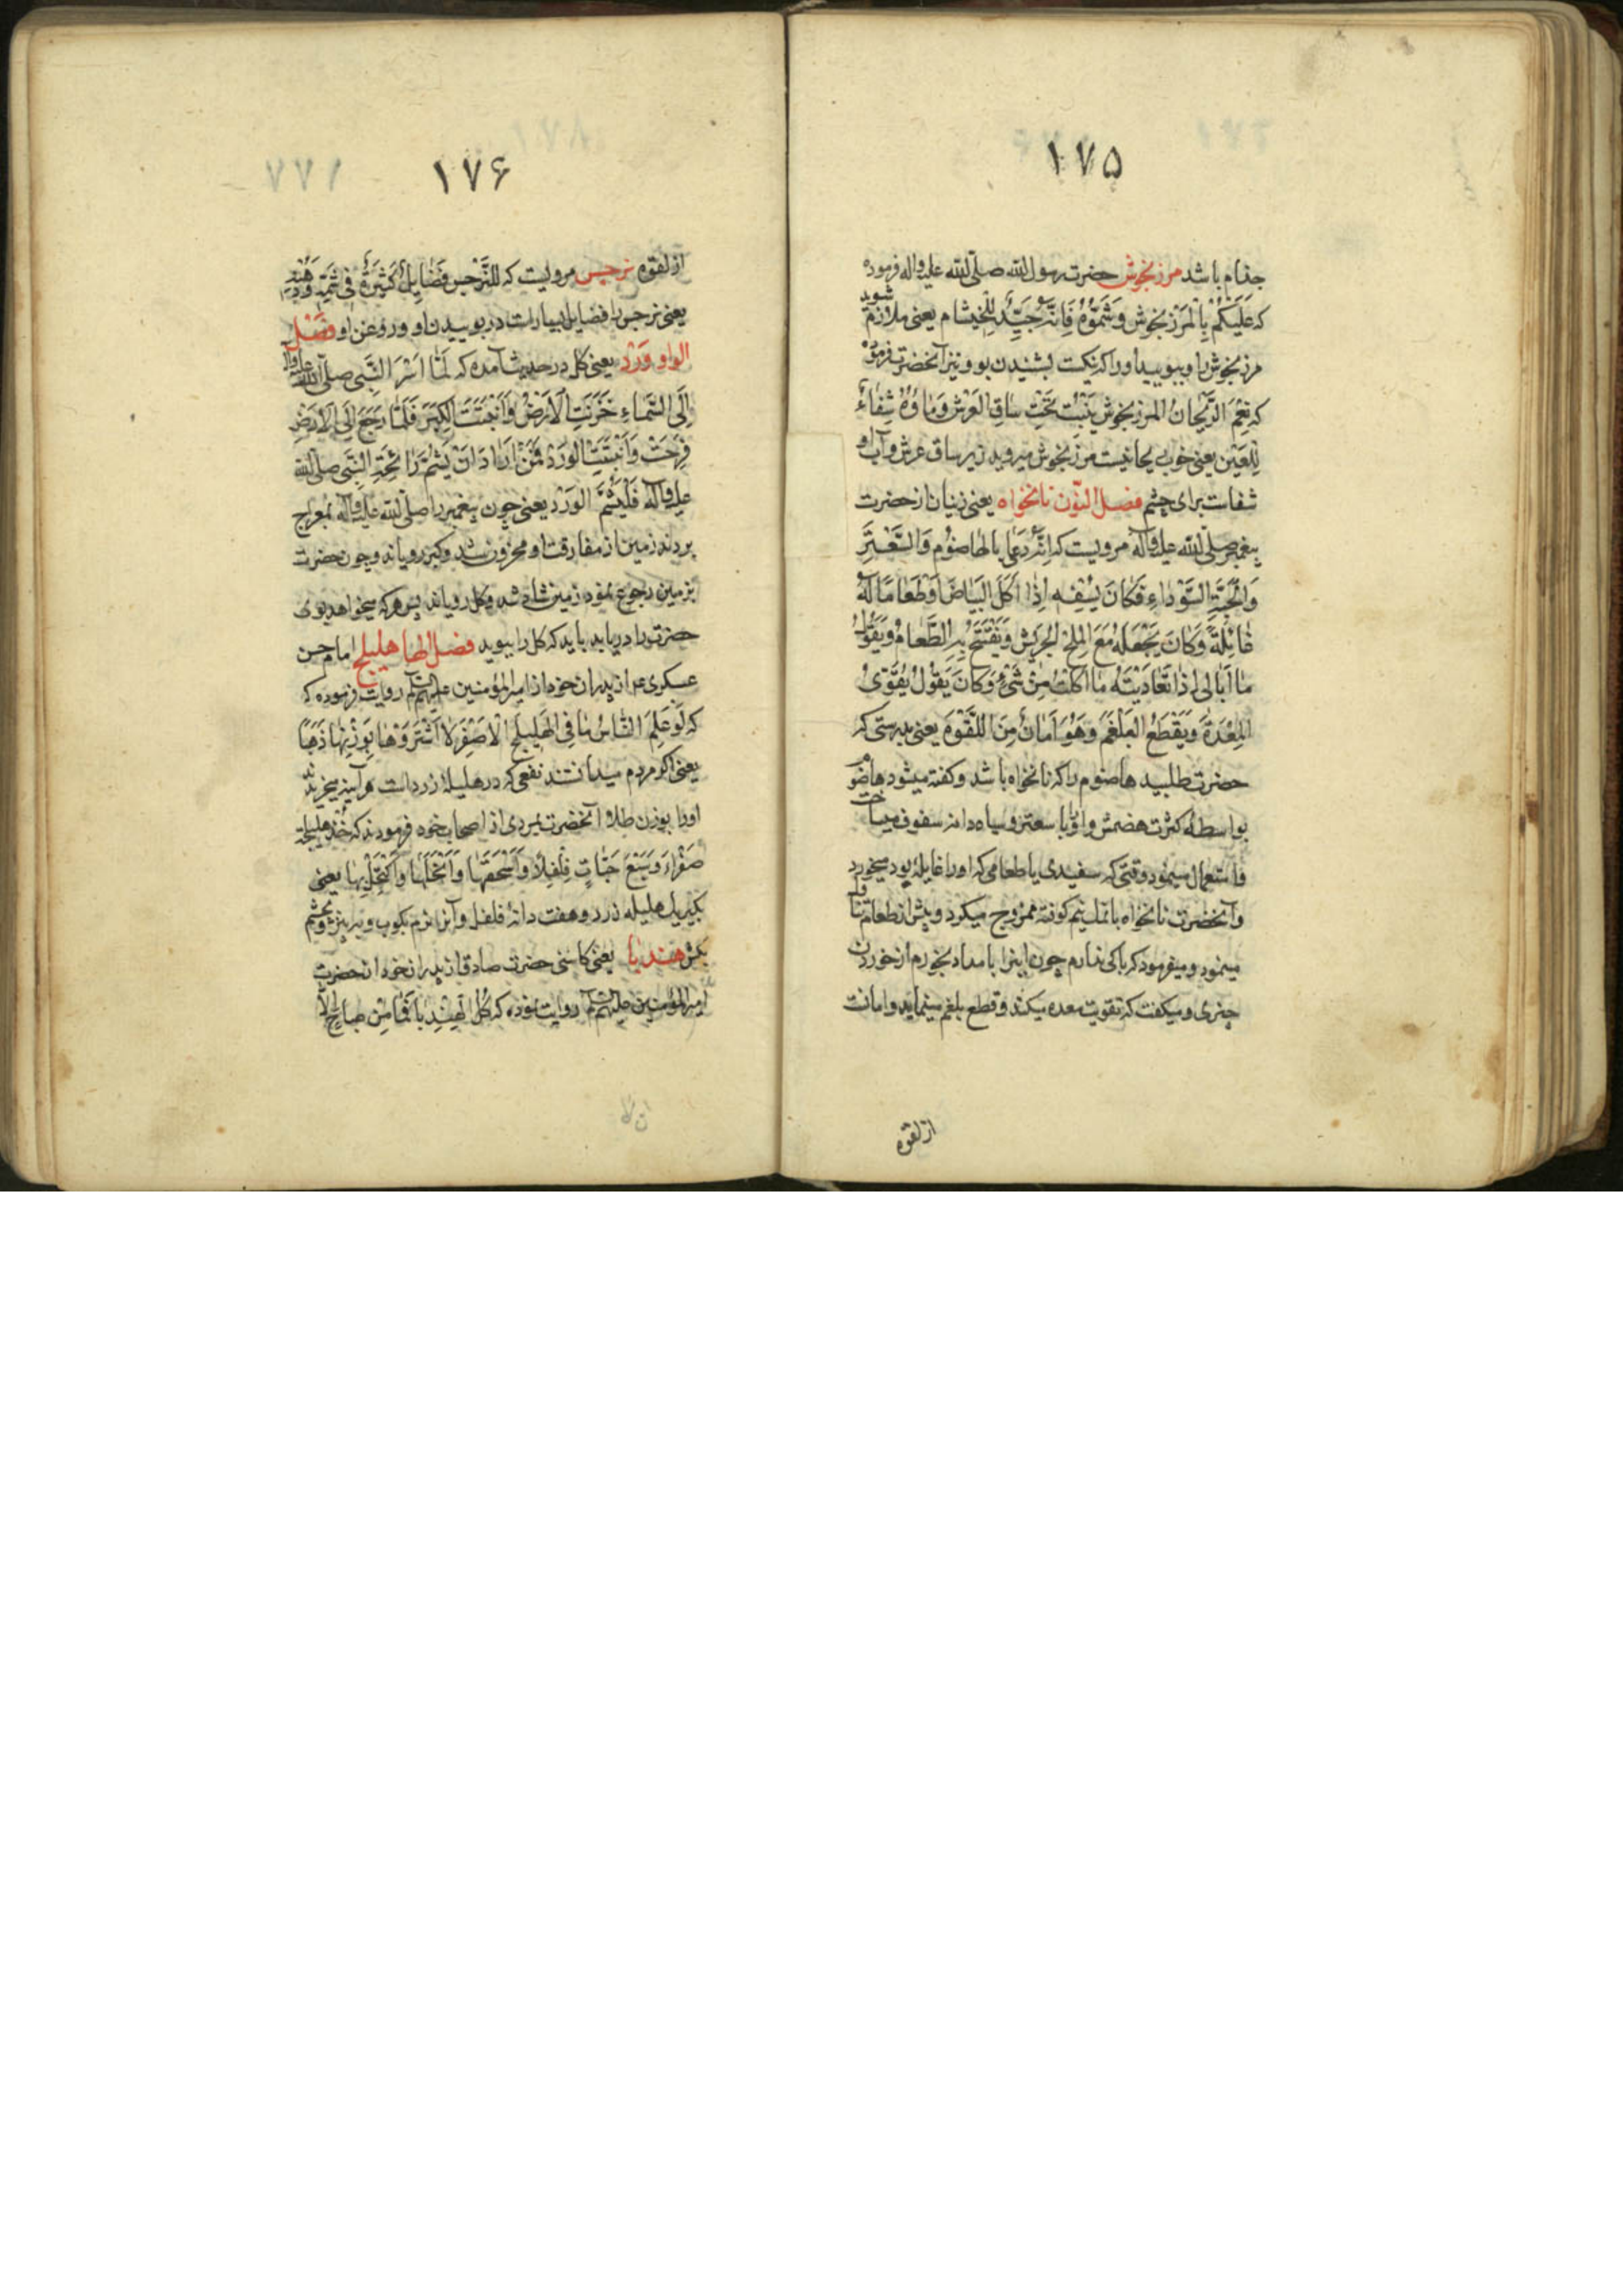 ١٧۵
جذام باشد مرزنجوش حضرت رسول الله صلّی الله علیه واله فرموده
که عَلَیْکُمْ بِالْمَرْزَنجوش وَشَمُّوهُ فَاِنَّهُ جَیِّدٌ لِلْخَیشام یعنی ملازم شوید
مرزنجوش را و ببویید او را که نیکست بشنیدن بو و نیز آنحضرت فرموده
که نِعْمَ الرَّیْحانُ المرزنجوش یَنْبُتُ تَحْتِ ساقِ العَرْش وَماؤُهُ شِفاءٌ
لِلْعَیْن یعنی خوب ریحانیست مرزنجوش میروید زیر ساق عرش و آب او
شفاست برای چشم فصل النّون نانخواه یعنی زنیان از حضرت
پیغمبر صلّی الله علیه وآله مرویست که اِنَّهُ دَعٰی بالهاضوُم وَالسَّعْتَرِ
وَالْحَبَّةِ السَّوْداءِ فَکانَ یَسُفُّه اِذٰا اَکَلَ الْبَیاضَ اَوْطَعامًا لَهُ
غٰائِلَةٌ وَکانَ یَجْعَلُهُ مَعَ الْمِلْحِ الْجَرِیْشِ وَیَفْتَتِحُ بِهِ الطَّعامُ وَیَقُولُ
مٰا اُبٰالی اِذٰا تَغٰادَیْتُهُ مٰا اَکَلْتُ مِنْ شَیْءٍ وَکانَ یَقُولُ یُقَوِّیُ
الْمِعْدَةَ وَیَقْطَعُ الْبَلْغَمَ وَهُوَ اَمٰانٌ مِنَ اللَّقْوَةِ یعنی بدرستی که
حضرت طلبید هاضوم را که نانخواه باشد وکفته میشود هاضوم
بواسطه کثرت هضمش واورا با سعتر وسیاه دانه سفوف میساخت
واستعمال مینمود وقتی که سفیدی یا طعامی که اورا غایله بود میخورد
وآنحضرت نانخواه با نمک نیم کوفته ممزوج میکرد وپیش از طعام تناول
مینمود ومیفرمود که باکی ندارم چون اینرا بامداد بخورم از خوردن
چیزی ومیکفت که تقویت معده میکند وقطع بلغم مینماید وامانت
از لقوه
١٧۶
از لقوه نرجس مرویست که لِلنَّرْجِسِ فَضٰایِلٌ کَثیرَةٌ فی شَمِّهِ وَدُهْنِهِ
یعنی نرجس را فضایل بسیارست در بوییدن او و روغن او فَصْل
الواو وَرْد یعنی کل در حدیث آمده که لَمّٰا اَسْرَ النَّبِی صلّی الله علیه وآله
اِلَی السَّماءِ حَزَنَتِ الْاَرْضُ وَاَنْبَتَتَ الْکَبَرَ فَلَمّٰا رَجَعَ اِلَی الْاَرْضِ
فَرِحَتْ وَاَنْبَتَتِ الْوَرْدَ فَمَنْ اَرٰادَ اَنْ یَشُمَّ رٰائِحَةَ النَّبِی صلّی الله
علیه وآله فَلْیَشُمَّ الْوَرْدَ یعنی چون پیغمبر را صلّی الله علیه وآله بمعراج
بردند زمین از مفارقت او محزون شد وکبر رویاند وچون حضرت
بزمین رجوع نمود زمین شاد شد وکل رویاند پس هر که میخواهد بوی
حضرت را دریابد باید که کل را ببوید فصل الهاء هلیلج امام حسن
عسکری ع از پدران خود از امیرالمؤمنین علیهم السلام روایت فرموده که
که لَوْ عَلِمَ النّٰاسُ مٰا فِی الْهَلیلَجِ الْاَصْفَرِ لَاشْتَرَوْهٰا بِوَزْنِهٰا ذَهَبًا
یعنی اکر مردم میدانستند نفعی که در هلیلهٔ زرد است هر آینه میخریدند
اورا بوزن طلا و آنحضرت بمردی از اصحاب خود فرمودند که خُذْ هلیلجة
صَفْراءَ وَسَبْعَ حَبّٰاتِ فِلْفِلٍ وَاسْحَقْهٰا وَانْخَلْهٰا وَاکْتَحِلْ بِهٰا یعنی
بگیر یک هلیله زرد وهفت دانهٔ فلفل وآنرا نرم بکوب وبه پیز وبچشم
بکش هندبا یعنی کاسنی حضرت صادق از پدران خود از حضرت
امیرالمؤمنین علیهم السلام روایت نموده که کُلِ الْهِنْدِبا فَمٰا مِنْ صَباحٍ اِلّا